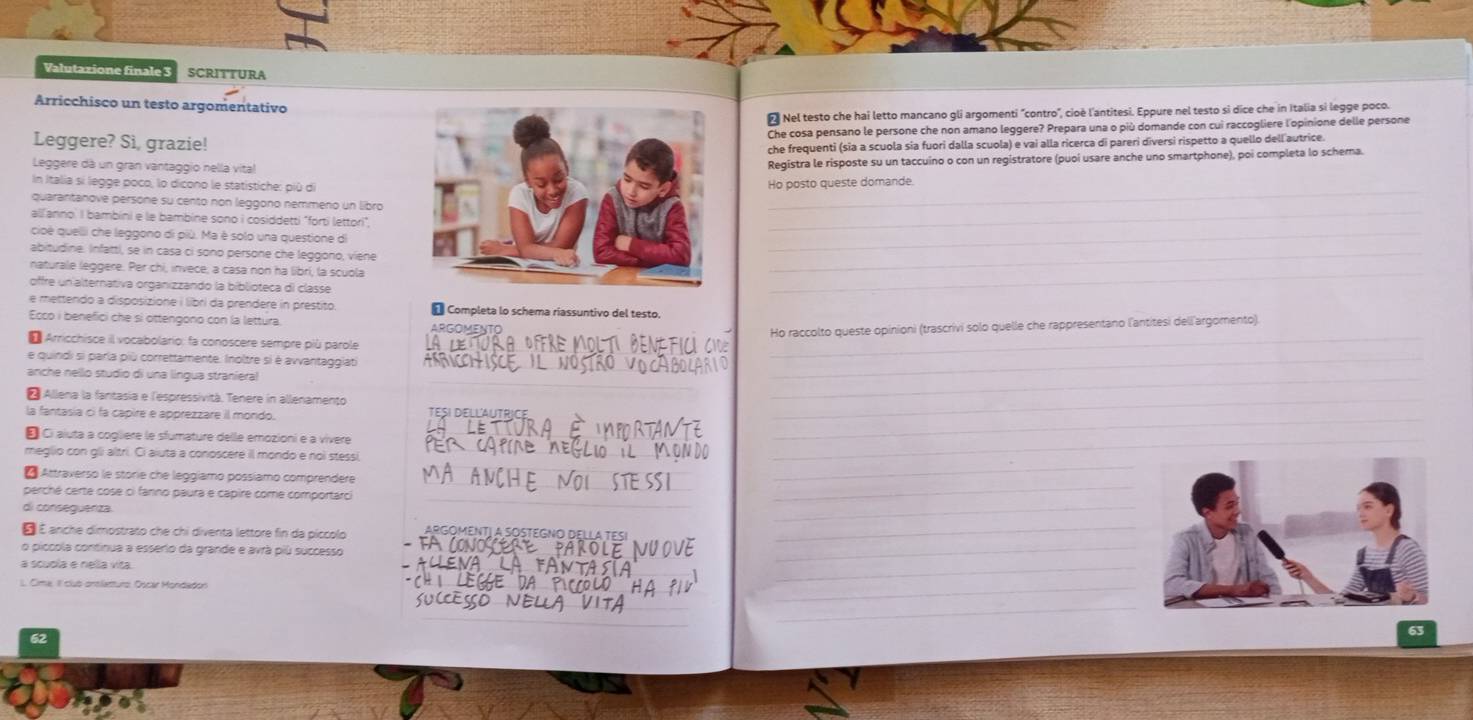 Valutazione finale 3 SCRITTURA
Arricchisco un testo argomentativo
Leggere? Sì, grazie!
Leggere dà un gran vantaggio nella vita!
In Italia si legge poco, lo dicono le statistiche: più di
quarantanove persone su cento non leggono nemmeno un libro
all'anno. I bambini e le bambine sono i cosiddetti "forti lettori",
cioè quelli che leggono di più. Ma è solo una questione di
abitudine. Infatti, se in casa ci sono persone che leggono, viene
naturale leggere. Per chi, invece, a casa non ha libri, la scuola
offre un'alternativa organizzando la biblioteca di classe
e mettendo a disposizione i libri da prendere in prestito.
Ecco i benefici che si ottengono con la lettura.
1 Arricchisce il vocabolario: fa conoscere sempre più parole
e quindi si parla più correttamente. Inoltre si è avvantaggiati
anche nello studio di una lingua straniera!
2 Allena la fantasia e l'espressività. Tenere in allenamento
la fantasia ci fa capire e apprezzare il mondo.
3 Ci aiuta a cogliere le sfumature delle emozioni e a vivere
meglio con gli altri. Ci aiuta a conoscere il mondo e noi stessi.
4 Attraverso le storie che leggiamo possiamo comprendere
perché certe cose ci fanno paura e capire come comportarci
di conseguenza.
5 È anche dimostrato che chi diventa lettore fin da piccolo
o piccola continua a esserlo da grande e avrà più successo
a scuola e nella vita.
L. Cima, Il club antilettura, Oscar Mondadori
62
1 Completa lo schema riassuntivo del testo.
ARGOMENTO
LA LETTURA OFFRE MOLTI BENEFICI CHE
ARRICCHISCE IL NOSTRO VOCABOLARIO
TESI DELL'AUTRICE
LA LETTURA È IMPORTANTE
PER CAPIRE MEGLIO IL MONDO
MA ANCHE NOI STESSI
ARGOMENTI A SOSTEGNO DELLA TESI
- FA CONOSCERE PAROLE NUOVE
- ALLENA LA FANTASIA
- CHI LEGGE DA PICCOLO HA PIU'
SUCCESSO NELLA VITA
2 Nel testo che hai letto mancano gli argomenti "contro", cioè l'antitesi. Eppure nel testo si dice che in Italia si legge poco.
Che cosa pensano le persone che non amano leggere? Prepara una o più domande con cui raccogliere l'opinione delle persone
che frequenti (sia a scuola sia fuori dalla scuola) e vai alla ricerca di pareri diversi rispetto a quello dell'autrice.
Registra le risposte su un taccuino o con un registratore (puoi usare anche uno smartphone), poi completa lo schema.
Ho posto queste domande.
Ho raccolto queste opinioni (trascrivi solo quelle che rappresentano l'antitesi dell'argomento).
63